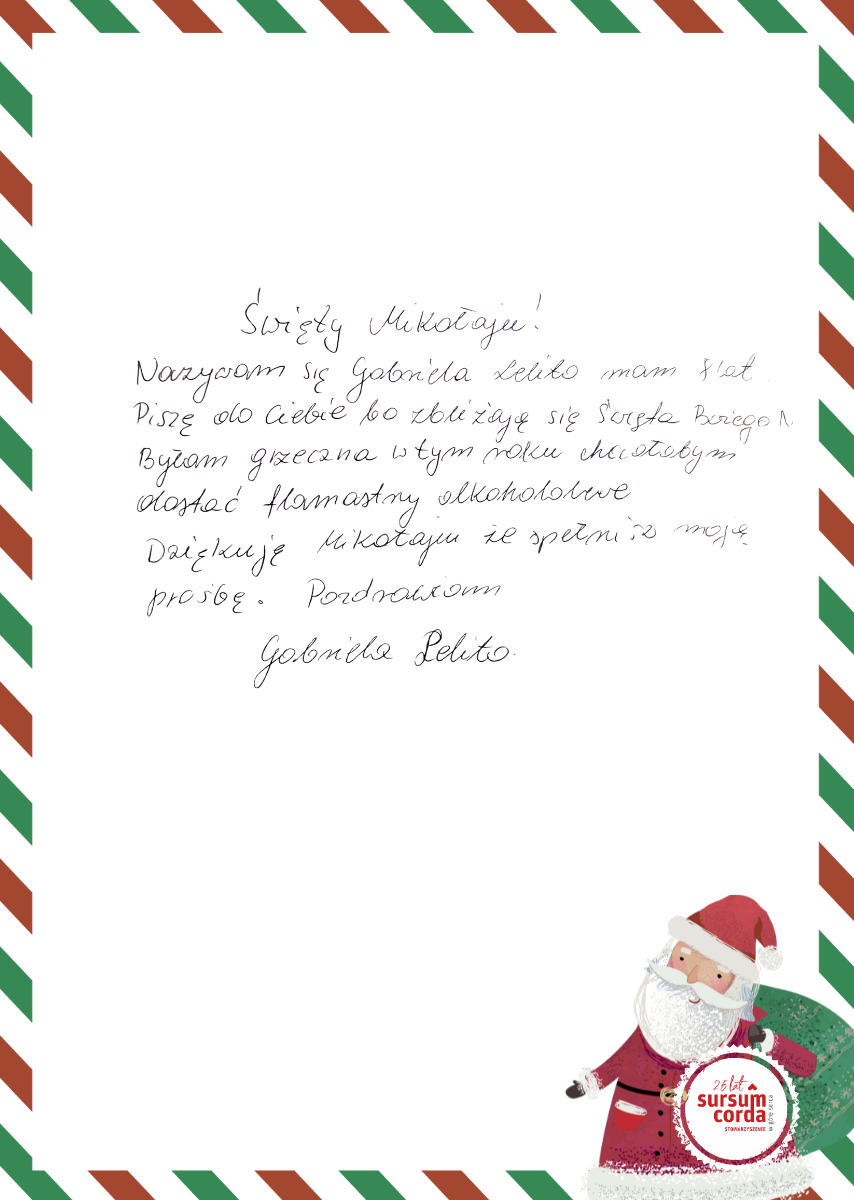 Święty Mikołaju!
Nazywam się Gabriela Lelito mam 8 lat.
Piszę do Ciebie bo zbliżają się Święta Bożego N.
Byłam grzeczna w tym roku chciałabym
dostać flamastry alkoholowe
Dziękuję Mikołaju że spełnisz moją
prośbę. Pozdrawiam
Gabriela Lelito.
25 lat
sursum
corda
STOWARZYSZENIE
w górę serca